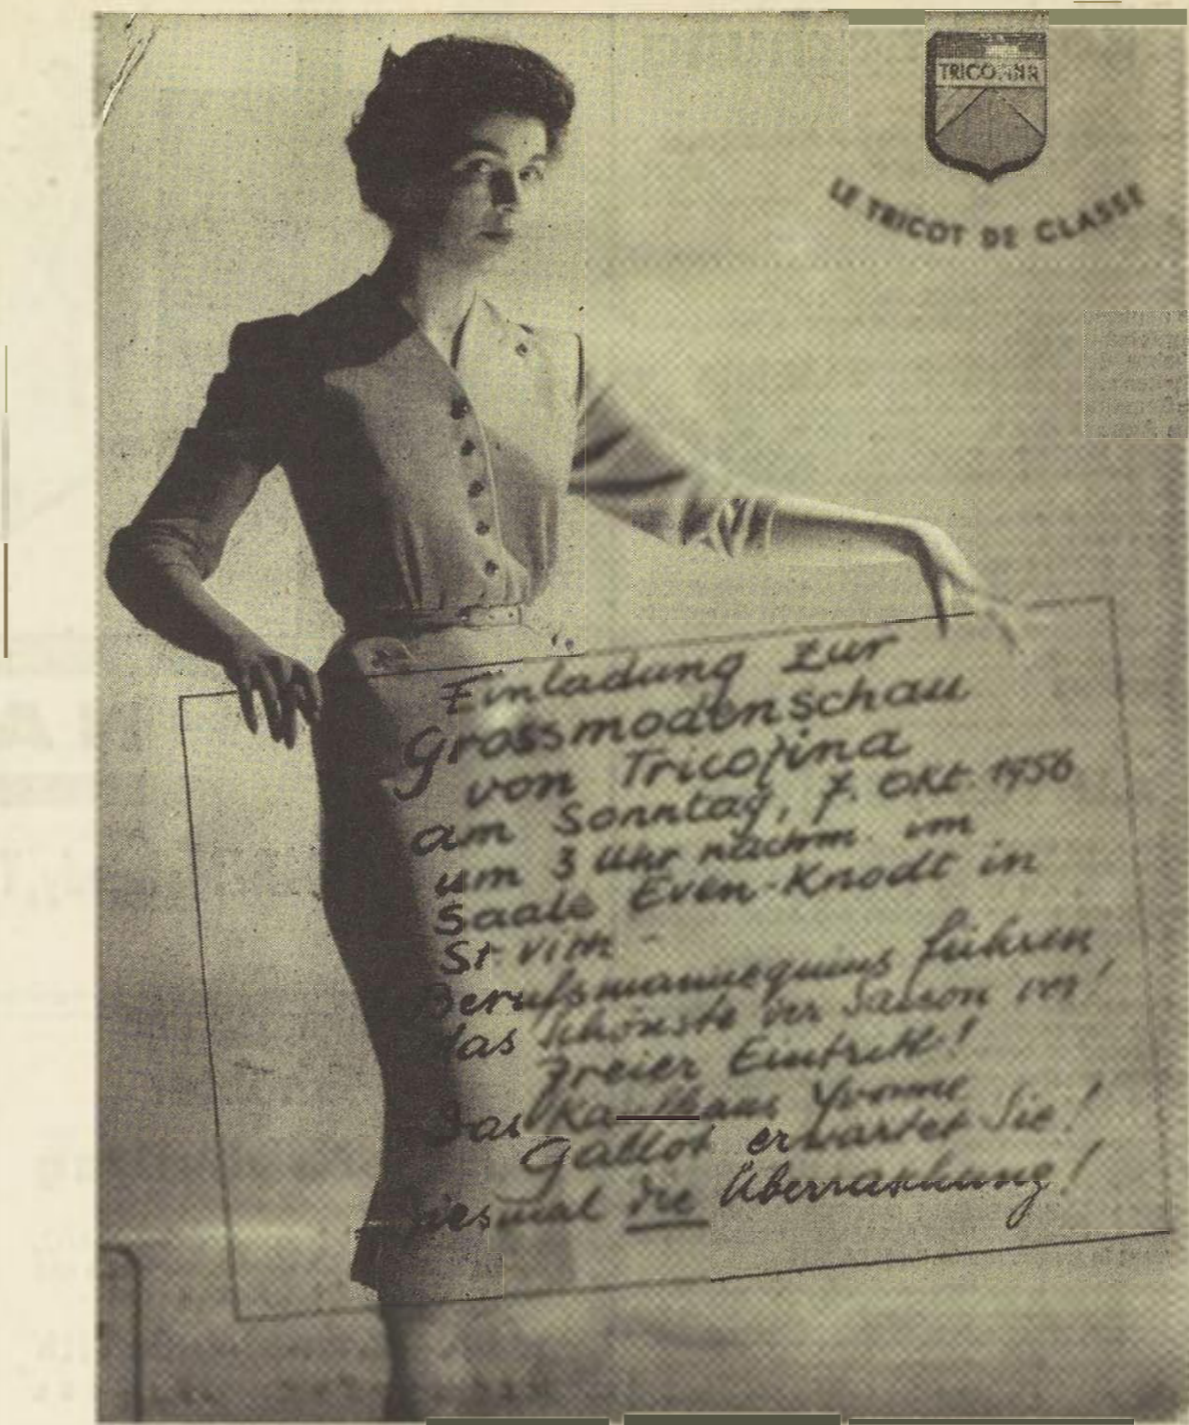 TRICOFINA
LE TRICOT DE CLASSE
Einladung zur
Grossmodenschau
von Tricofina
am Sonntag, 7. Okt. 1956
um 3 Uhr nachm. im
Saale Even-Knodt in
St. Vith -
Berufsmannequins führen
das Schönste der Saison vor!
Freier Eintritt!
Das Kaufhaus Yvonne
Gallot erwartet Sie!
Diesmal die Überraschung!